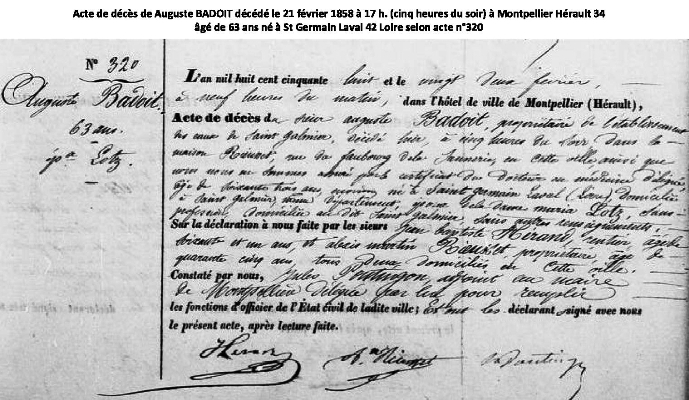 Acte de décès de Auguste BADOIT décédé le 21 février 1858 à 17 h. (cinq heures du soir) à Montpellier Hérault 34
âgé de 63 ans né à St Germain Laval 42 Loire selon acte n°320
N° 320
Auguste Badoit,
63 ans.
px Lotz.
L'an mil huit cent cinquante huit et le vingt deux février,
à neuf heures du matin, dans l'hôtel de ville de Montpellier (Hérault),
Acte de décès du sieur auguste Badoit, propriétaire de l'établissement
des eaux de Saint galmier, décédé hier, à cinq heures du soir dans la
maison rue du faubourg de la Saunerie, en cette ville ainsi que
nous nous en sommes assuré par le certificat du Docteur en médecine délégué,
âgé de soixante trois ans, environ, né à Saint germain Laval (Loire), domicilié
à Saint galmier, même département, époux de la dame maria Lotz, sans
profession, domiciliée au dit Saint galmier, sans autres renseignements.
Sur la déclaration à nous faite par les sieurs Jean baptiste rentier, âgé de
soixante et un ans, et alexis martin propriétaire, âgé de
quarante cinq ans, tous deux domiciliés en cette ville.
Constaté par nous, Jules adjoint au maire
de Montpellier délégué par lui pour remplir
les fonctions d'officier de l'État civil de ladite ville; Et ont les déclarant signé avec nous
le présent acte, après lecture faite.